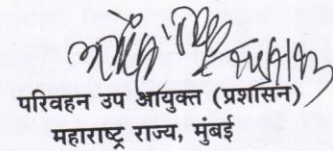 परिवहन उप आयुक्त (प्रशासन)
महाराष्ट्र राज्य, मुंबई